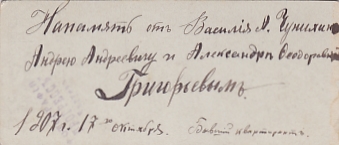 Напамять отъ Василія А. Чунихина
Андрею Андреевичу и Александрѣ Феодоровнѣ
Григорьевымъ.
1907 г. 17го октября. Бывшій квартирантъ.